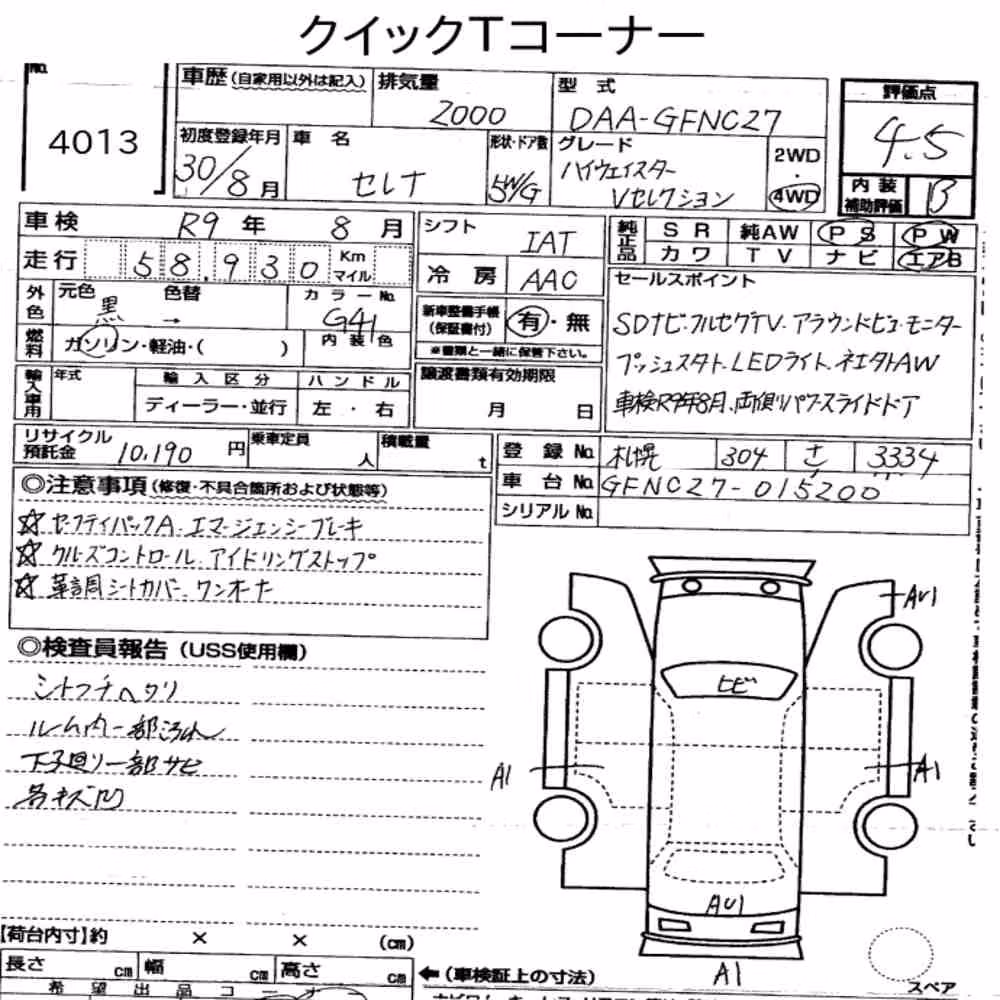 クイックTコーナー
No.
4013
車歴 (自家用以外は記入) 排気量 2000 型式 DAA-GFNC27
初度登録年月 30/8月 車名 セレナ 形状・ドア数 5W/G グレード ハイウェイスター Vセレクション 2WD・4WD
評価点 4.5
内装補助評価 B
車検 R9年 8月
走行 58,930 Km マイル
外色 元色 黒 色替 → カラーNo. G41
燃料 ガソリン・軽油・( ) 内装色
輸入車用 年式 輸入区分 ディーラー・並行 ハンドル 左・右
シフト IAT
冷房 AAC
新車整備手帳 (保証書付) 有・無
※書類と一緒に保管下さい。
譲渡書類有効期限 月 日
純正品 SR 純AW PS PW
カワ TV ナビ エアB
セールスポイント
SDナビ・フルセグTV・アラウンドビューモニター
プッシュスタート、LEDライト、純正AW
車検R9年8月、両側パワースライドドア
リサイクル預託金 10,190円 乗車定員 人 積載量 t
登録No. 札幌 304 さ 3334
車台No. GFNC27-015200
シリアルNo.
◎注意事項 (修復・不具合箇所および状態等)
☆セーフティパックA、エマージェンシーブレーキ
☆クルーズコントロール、アイドリングストップ
☆革調シートカバー、ワンオーナー
◎検査員報告 (USS使用欄)
シートフチヘタリ
ルーム内一部汚れ
下廻り一部サビ
各キズ凹
AU1
ヒビ
A1
A1
AU1
A1
スペア
【荷台内寸】約 × × (cm)
長さ cm 幅 cm 高さ cm
←(車検証上の寸法)
希望出品コーナー